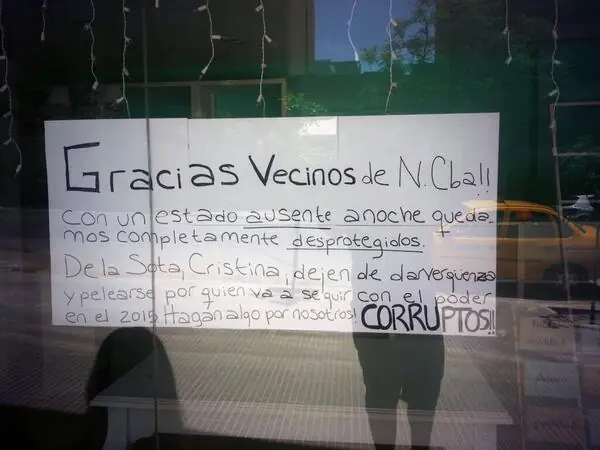 Gracias Vecinos de N.Cba!!
con un estado ausente anoche queda-
mos completamente desprotegidos.
De la Sota, Cristina, ¡dejen de dar vergüenza
y pelearse por quien va a seguir con el poder
en el 2015 Hagan algo por nosotros! CORRUPTOS!!